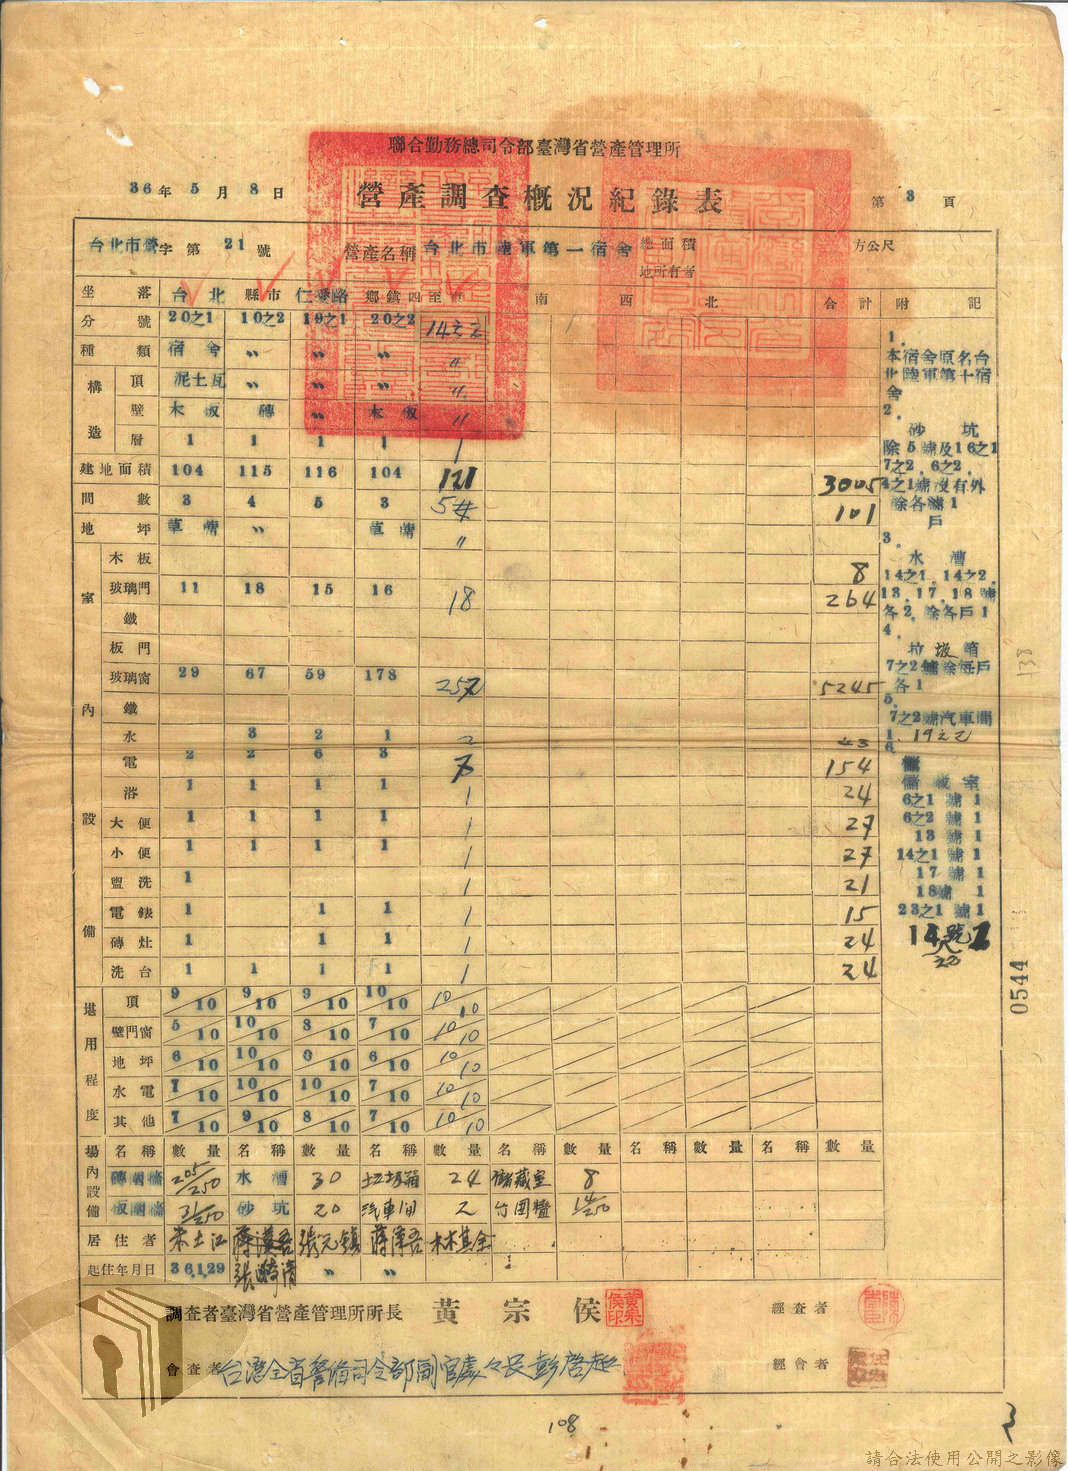 聯合勤務總司令部臺灣省營產管理所
36年5月8日 營產調查概況紀錄表 第3頁
台北市營字第21號 營產名稱 台北市陸軍第一宿舍 總面積 方公尺
地所有者
坐落 台北縣市仁愛路鄉鎮四至東 南 西 北 合計 附記
分號 20之1 10之2 19之1 20之2 14之2
種類 宿舍 〃 〃 〃 〃
構造 頂 泥土瓦 〃 〃 〃 〃
壁 木板 磚 〃 木板 〃
層 1 1 1 1 1
建地面積 104 115 116 104 121 3005
間數 3 4 5 3 5 101
地坪 草蓆 〃 草蓆 〃
室內設備
木板 8
玻璃門 11 18 15 16 18 264
鐵
板門
玻璃窗 29 67 59 178 257 5245
鐵
水 3 2 1 2 43
電 2 2 6 3 7 154
浴 1 1 1 1 1 24
大便 1 1 1 1 1 27
小便 1 1 1 1 1 27
盥洗 1 1 21
電錶 1 1 1 1 15
磚灶 1 1 1 1 24
洗台 1 1 1 1 1 24
1.
本宿舍原名台
北陸軍第十宿
舍
2.
砂坑
除5號及16之1
7之2.6之2.
4之1號沒有外
除各號1
戶
3.
水漕
14之1.14之2.
13.17.18號
各2.除各戶1
4.
垃圾箱
7之2號除每戶
各1
5.
7之2號汽車間
1.19之2
6.
儲藏室
6之1號1
6之2號1
13號1
14之1號1
17號1
18號1
23之1號1
14號之1
22
堪用程度
頂 9/10 9/10 9/10 10/10 10/10
壁門窗 5/10 10/10 8/10 7/10 10/10
地坪 6/10 10/10 9/10 6/10 10/10
水電 7/10 10/10 10/10 7/10 10/10
其他 7/10 9/10 8/10 7/10 10/10
場內設備
名稱 數量 名稱 數量 名稱 數量 名稱 數量 名稱 數量 名稱 數量
磚圍牆 205/250 水漕 30 垃圾箱 24 儲藏室 8
板圍牆 31/250 砂坑 20 汽車間 2 竹圍籬 14/250
居住者 朱土江 蔣漢吾 張元鎮 蔣漢吾 林其全
起住年月日 36.1.29 張騎清 〃 〃
調查者臺灣省營產管理所所長 黃宗侯 經查者
會查者 台灣全省警備司令部副官處處長彭啓超 經會者
108
138
0544
3
請合法使用公開之影像